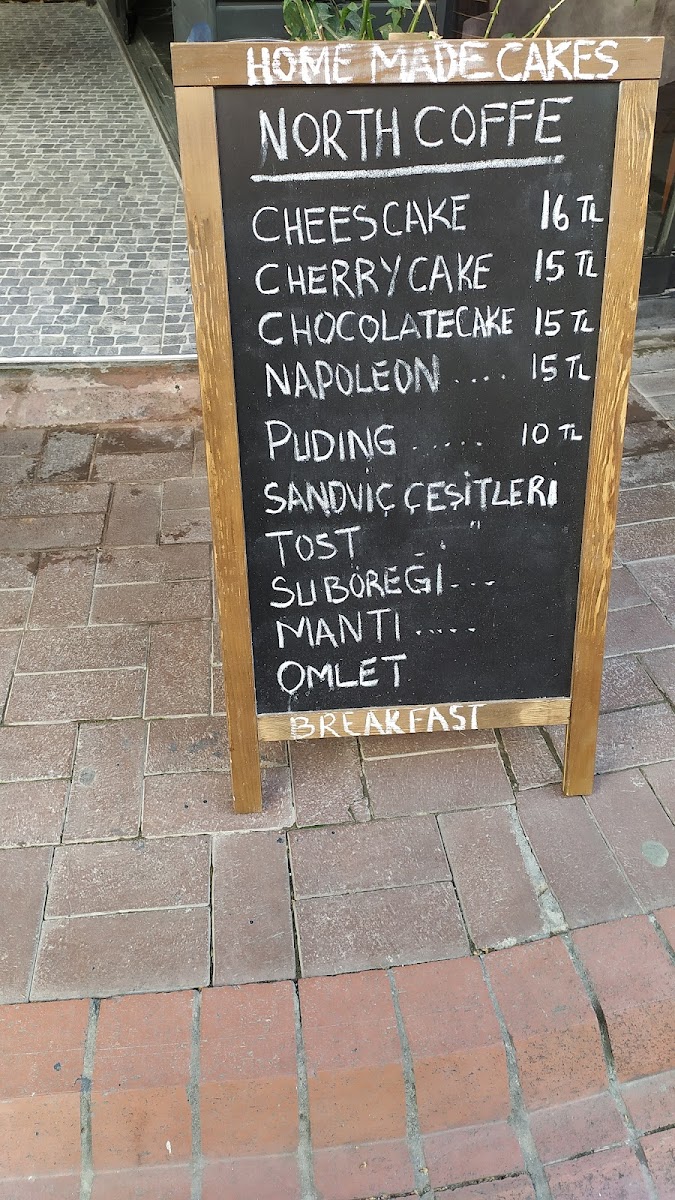 HOME MADE CAKES
NORTH COFFE
CHEESCAKE 16 TL
CHERRYCAKE 15 TL
CHOCOLATECAKE 15 TL
NAPOLEON .... 15 TL
PUDİNG ..... 10 TL
SANDVİÇ ÇEŞİTLERİ
TOST - . "
SU BÖREĞİ - - -
MANTI .....
OMLET
BREAKFAST